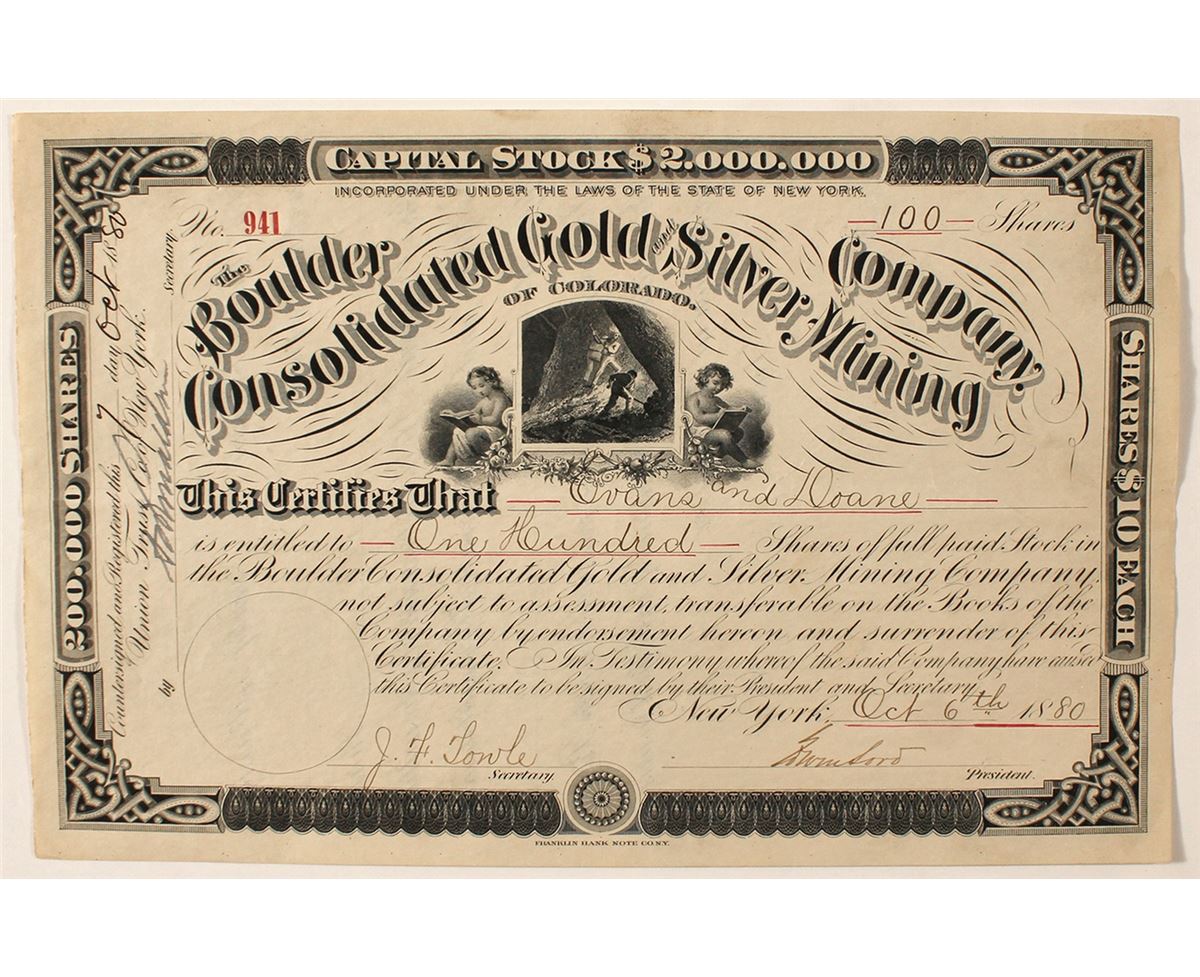 CAPITAL STOCK $2.000.000
INCORPORATED UNDER THE LAWS OF THE STATE OF NEW YORK.
No. 941
—100— Shares
The Boulder
Consolidated Gold and Silver Mining
Company.
OF COLORADO.
This Certifies That — Evans and Doane —
is entitled to — One Hundred — Shares of full paid Stock in
the Boulder Consolidated Gold and Silver Mining Company,
not subject to assessment, transferable on the Books of the
Company by endorsement hereon and surrender of this
Certificate. In Testimony whereof the said Company have caused
this Certificate to be signed by their President and Secretary
New York, Oct 6th 1880
J. F. Towle
Secretary.
President.
200.000 SHARES
SHARES $10 EACH
Countersigned and Registered this 7 day Oct 1880
Union Trust Co. of New York.
by
Secretary.
FRANKLIN BANK NOTE CO. N.Y.